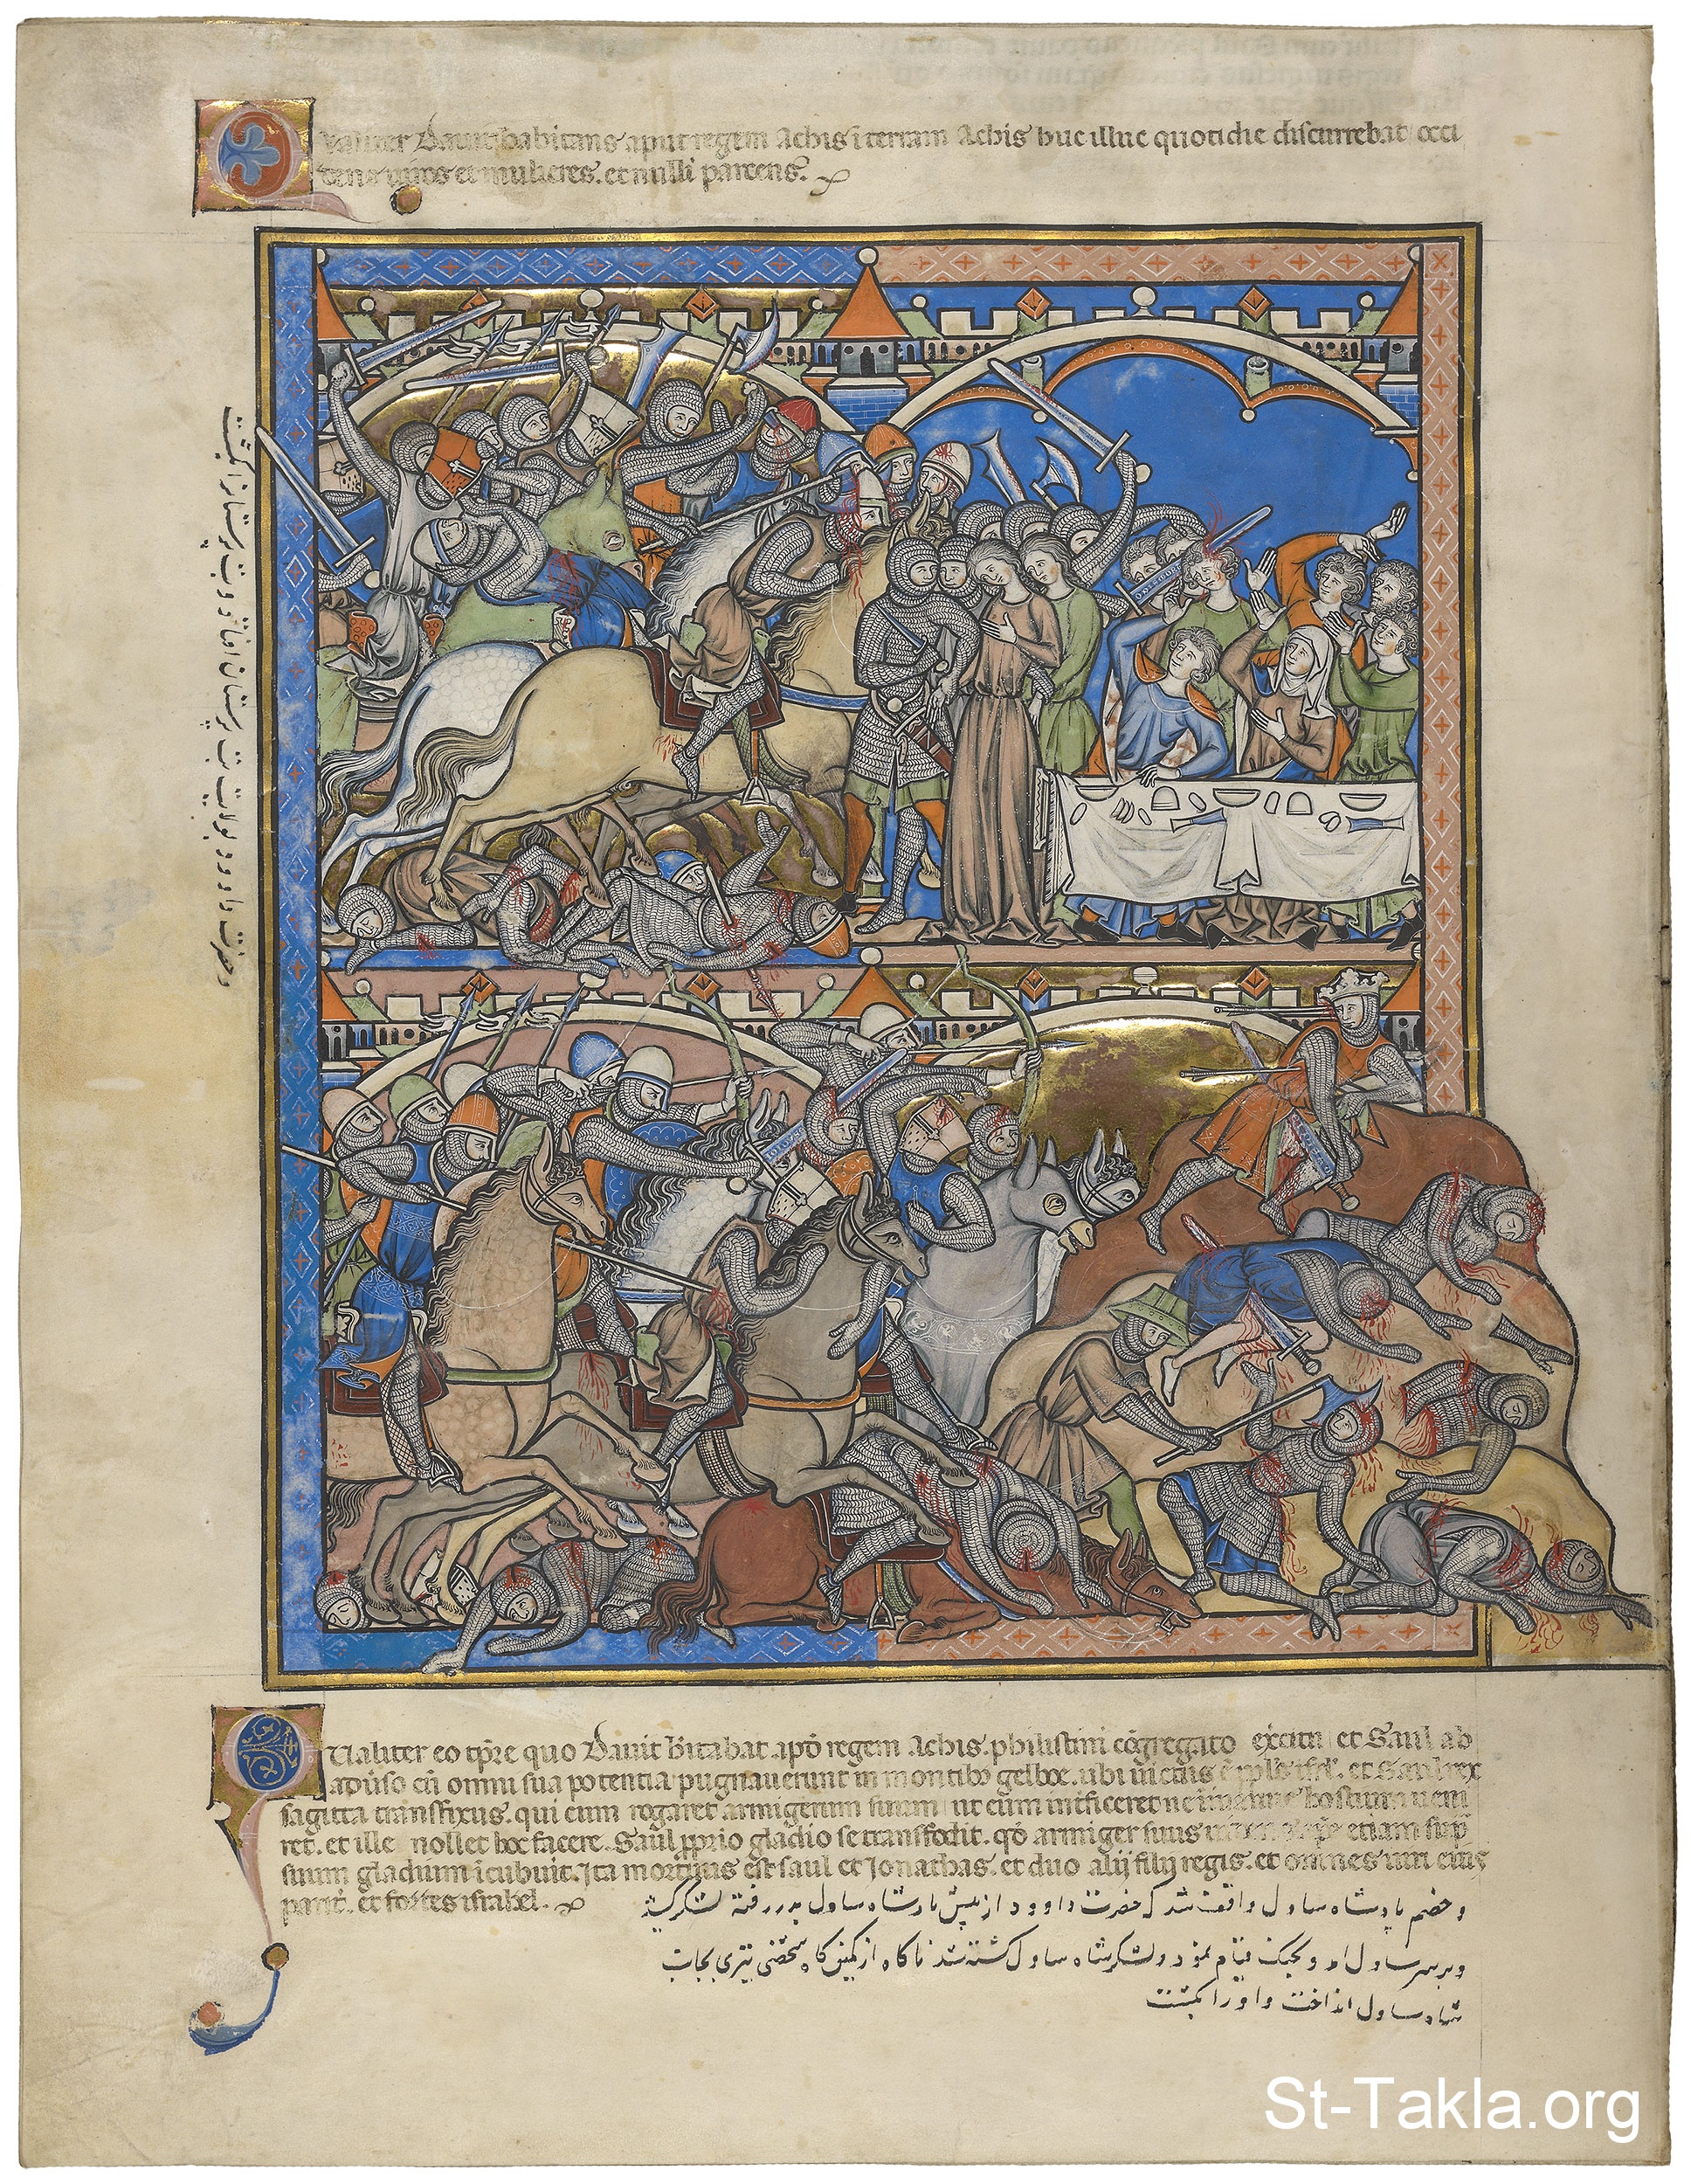 Qualiter Dauit habitans aput regem Achis ī terram Achis huc illuc quotidie discurrebat occi
dens uiros et mulieres. et nulli parcens.
و حضرت داوود بولایت بت پرستان افتاد و بت پرستانرا بکشت
Qualiter eo tp̄re quo Dauit h̄itabat apō regem Achis. philistini cōgregato exc̄itu et Saul ab
aduiso cū omni sua potentia pugnauerunt in montibꝰ gelboe. ubi uictus ē ppl̄s isrl̄. et Saul rex
sagitta transfixus. qui cum rogaret armigerum suum ut eum interficeret ne in manus hostium ueni
ret. et ille nollet hoc facere. Saul ꝓprio gladio se transfodit. qō armiger suus etiam sup̄
suum gladium īcubuit. Ita mortuus est saul et Jonathas. et duo alij filij regis. et omnes uiri eius
parit̄. et fortes israhel.
و خصم پادشاه ساول واقف شد که حضرت داوود از پیش پادشاه ساول بدر رفته لشکر کشید
و بر سر ساول امد و بجنگ قیام نمود و لشکر شاه ساول کشته شد ناکاه از کمین کاه شخصی تیری بجانب
شاه ساول انداخت و اورا بکشت
St-Takla.org